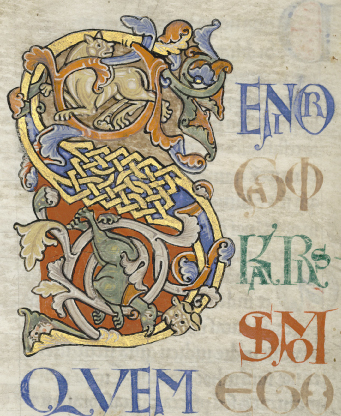 SENIOR
GAIO
KARIS
SIMO
QVEM EGO